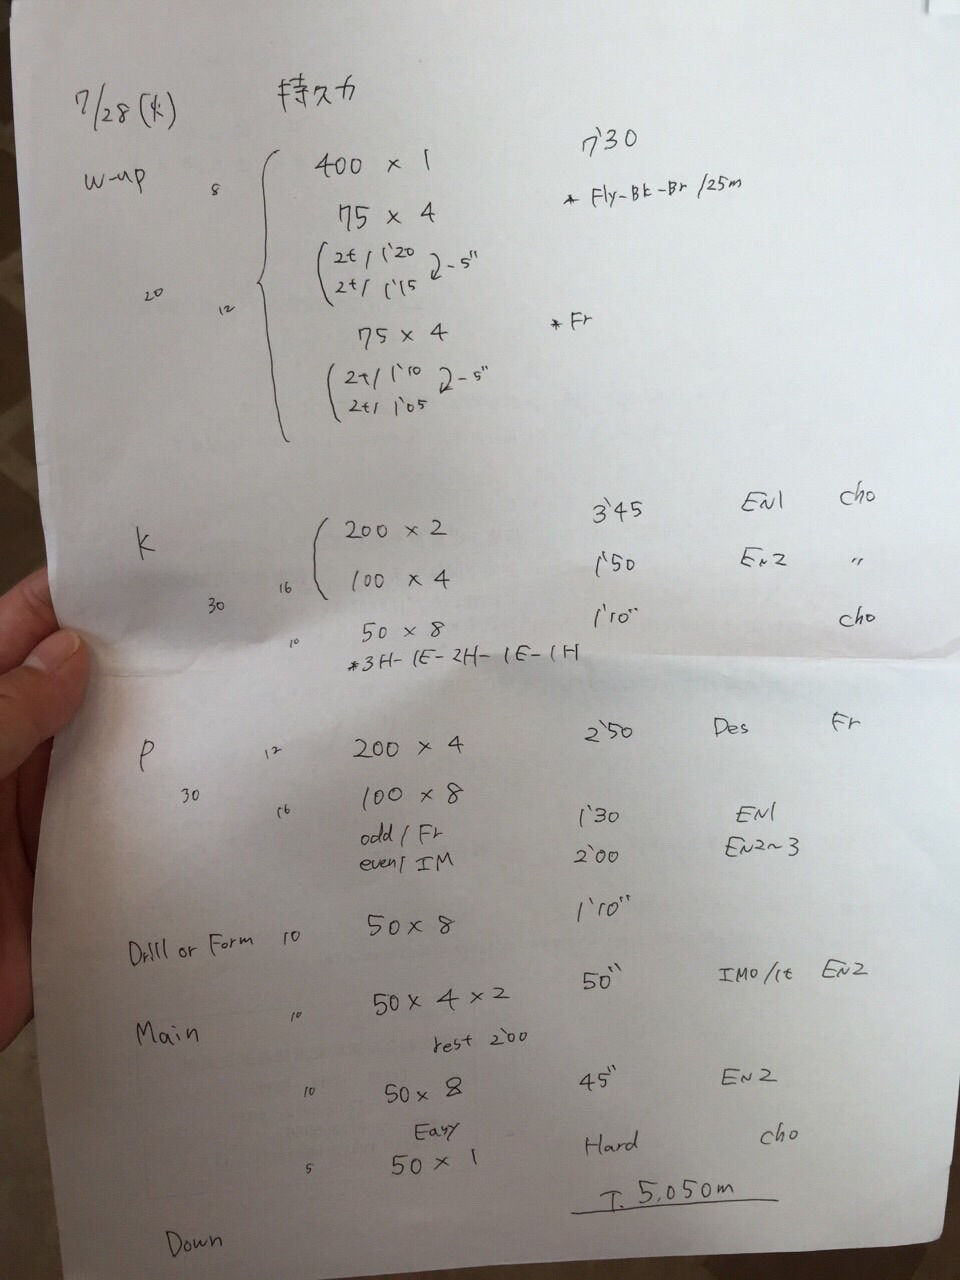 7/28(火) 持久力
W-up 8 400 × 1 7'30
75 × 4 * Fly-Bk-Br /25m
2t/ 1'20
2t/ 1'15 -5"
20 12
75 × 4 * Fr
2t/ 1'10
2t/ 1'05 -5"
K 200 × 2 3'45 EN1 cho
30 16 100 × 4 1'50 EN2 〃
10 50 × 8 1'10" cho
*3H-1E-2H-1E-1H
P 12 200 × 4 2'50 Des Fr
30 16 100 × 8
odd/Fr 1'30 EN1
even/IM 2'00 EN2~3
Drill or Form 10 50 × 8 1'10"
Main 10 50 × 4 × 2 50" IMO/1t EN2
rest 2'00
10 50 × 8 45" EN2
Easy
5 50 × 1 Hard cho
T. 5,050m
Down